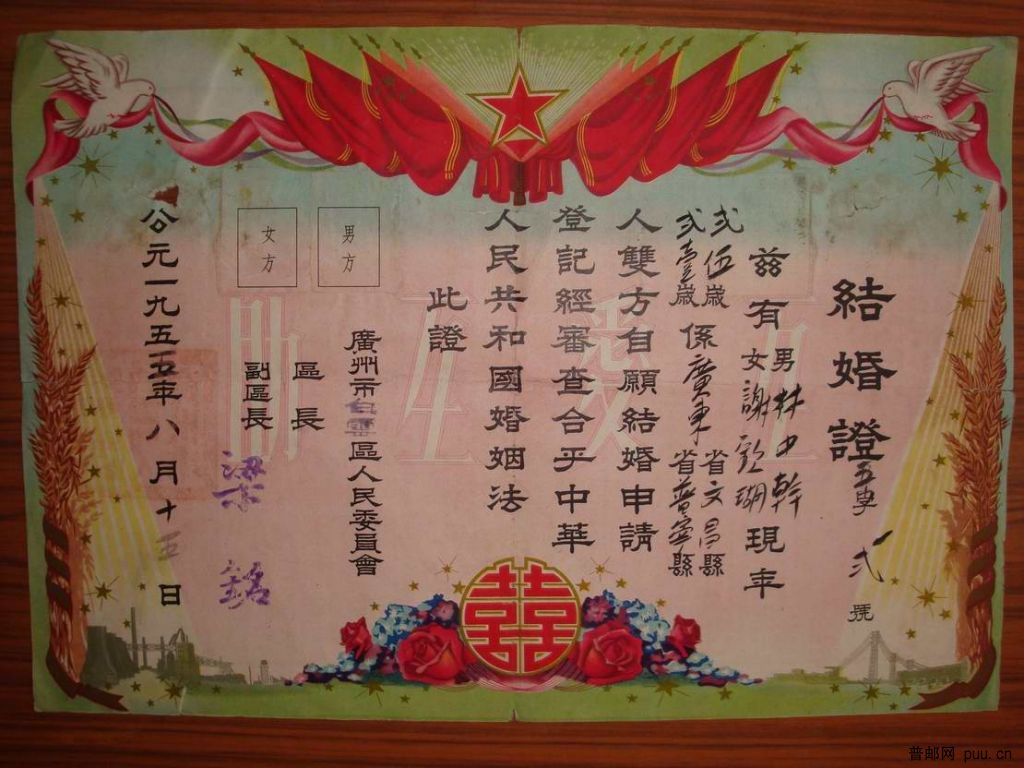 結婚證
五字 弍 號
茲有 男 林 幹 現年
女 謝 瑚
弍伍歲 係廣東省文昌縣
弍壹歲 省普寧縣
人雙方自願結婚申請
登記經審查合乎中華
人民共和國婚姻法
此證
男方
女方
廣州市白雲區人民委員會
區長
副區長
梁銘
公元一九五五年八月十五日
互愛互助
普邮网 puu.cn